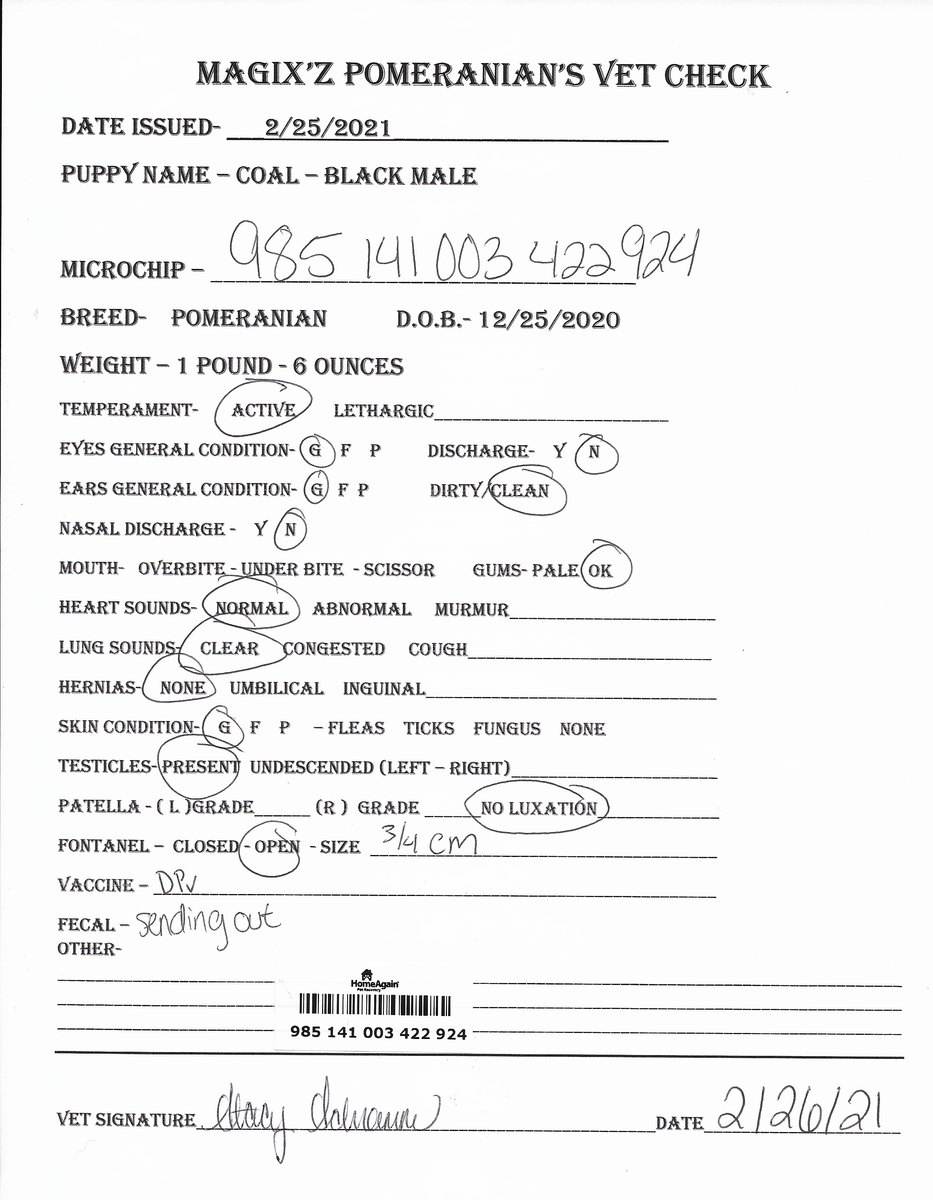 MAGIX'Z POMERANIAN'S VET CHECK
DATE ISSUED- 2/25/2021
PUPPY NAME – COAL – BLACK MALE
MICROCHIP – 985 141 003 422 924
BREED- POMERANIAN D.O.B.- 12/25/2020
WEIGHT – 1 POUND - 6 OUNCES
TEMPERAMENT- ACTIVE LETHARGIC
EYES GENERAL CONDITION- G F P DISCHARGE- Y N
EARS GENERAL CONDITION- G F P DIRTY/CLEAN
NASAL DISCHARGE - Y N
MOUTH- OVERBITE - UNDER BITE - SCISSOR GUMS- PALE OK
HEART SOUNDS- NORMAL ABNORMAL MURMUR
LUNG SOUNDS- CLEAR CONGESTED COUGH
HERNIAS- NONE UMBILICAL INGUINAL
SKIN CONDITION- G F P – FLEAS TICKS FUNGUS NONE
TESTICLES- PRESENT UNDESCENDED (LEFT – RIGHT)
PATELLA - ( L )GRADE (R ) GRADE NO LUXATION
FONTANEL – CLOSED - OPEN - SIZE 3/4 cm
VACCINE – DPv
FECAL – sending out
OTHER-
HomeAgain
Pet Recovery
985 141 003 422 924
VET SIGNATURE Stacy DATE 2/26/21